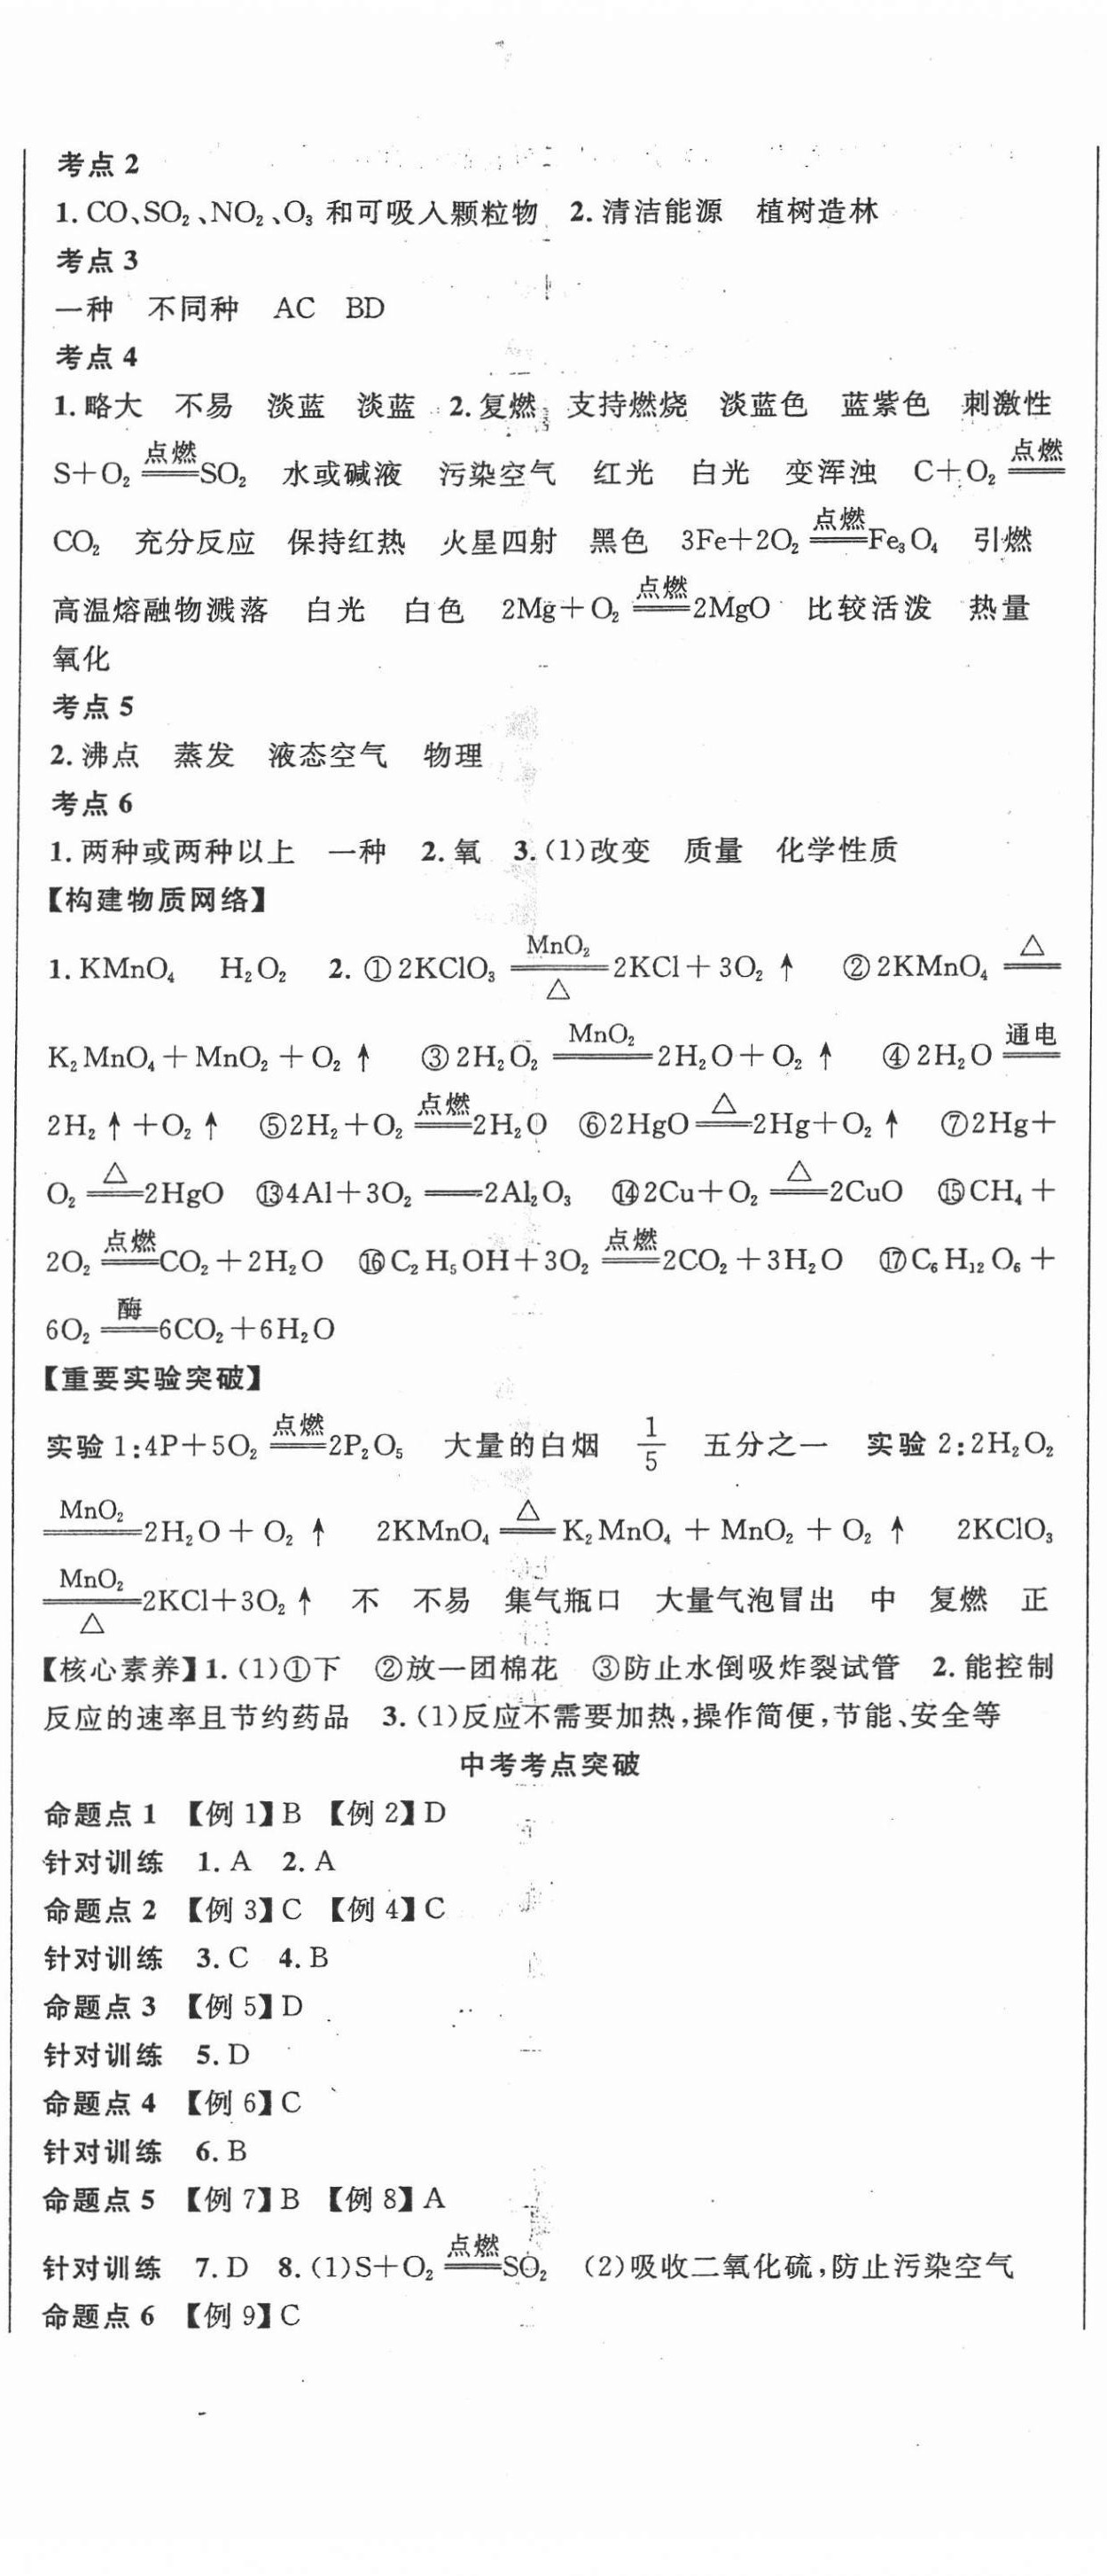 考点 2
1. CO、SO₂、NO₂、O₃ 和可吸入颗粒物 2. 清洁能源 植树造林
考点 3
一种 不同种 AC BD
考点 4
1. 略大 不易 淡蓝 淡蓝 2. 复燃 支持燃烧 淡蓝色 蓝紫色 刺激性
S+O₂ =点燃= SO₂ 水或碱液 污染空气 红光 白光 变浑浊 C+O₂ =点燃=
CO₂ 充分反应 保持红热 火星四射 黑色 3Fe+2O₂ =点燃= Fe₃O₄ 引燃
高温熔融物溅落 白光 白色 2Mg+O₂ =点燃= 2MgO 比较活泼 热量
氧化
考点 5
2. 沸点 蒸发 液态空气 物理
考点 6
1. 两种或两种以上 一种 2. 氧 3. (1)改变 质量 化学性质
【构建物质网络】
1. KMnO₄ H₂O₂ 2. ①2KClO₃ =MnO₂/△= 2KCl+3O₂↑ ②2KMnO₄ =△=
K₂MnO₄+MnO₂+O₂↑ ③2H₂O₂ =MnO₂= 2H₂O+O₂↑ ④2H₂O =通电=
2H₂↑+O₂↑ ⑤2H₂+O₂ =点燃= 2H₂O ⑥2HgO =△= 2Hg+O₂↑ ⑦2Hg+
O₂ =△= 2HgO ⑬4Al+3O₂ == 2Al₂O₃ ⑭2Cu+O₂ =△= 2CuO ⑮CH₄+
2O₂ =点燃= CO₂+2H₂O ⑯C₂H₅OH+3O₂ =点燃= 2CO₂+3H₂O ⑰C₆H₁₂O₆+
6O₂ =酶= 6CO₂+6H₂O
【重要实验突破】
实验 1:4P+5O₂ =点燃= 2P₂O₅ 大量的白烟 1/5 五分之一 实验 2:2H₂O₂
=MnO₂= 2H₂O+O₂↑ 2KMnO₄ =△= K₂MnO₄+MnO₂+O₂↑ 2KClO₃
=MnO₂/△= 2KCl+3O₂↑ 不 不易 集气瓶口 大量气泡冒出 中 复燃 正
【核心素养】1. (1)①下 ②放一团棉花 ③防止水倒吸炸裂试管 2. 能控制
反应的速率且节约药品 3. (1)反应不需要加热,操作简便,节能、安全等
中考考点突破
命题点 1 【例 1】B 【例 2】D
针对训练 1. A 2. A
命题点 2 【例 3】C 【例 4】C
针对训练 3. C 4. B
命题点 3 【例 5】D
针对训练 5. D
命题点 4 【例 6】C
针对训练 6. B
命题点 5 【例 7】B 【例 8】A
针对训练 7. D 8. (1)S+O₂ =点燃= SO₂ (2)吸收二氧化硫,防止污染空气
命题点 6 【例 9】C